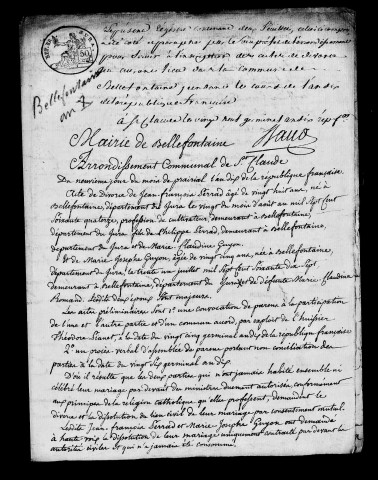 Bellefontaine
an X
Le présent registre contenant deux feuillets, celui-ci compris
a été coté et paraphé par le sous préfet de l'arrondissement
pour servir à l'inscription des actes de divorce
qui auront lieu dans la commune de
Bellefontaine pendant le cours de l'an dix
de la république française
à St Claude le vingt neuf germinal an dix rép.
Mairie de Bellefontaine
Arrondissement Communal de St Claude
Du neuvième jour du mois de prairial l'an dix de la république française
Acte de Divorce de Jean françois Perrad âgé de vingt huit ans, né à
Bellefontaine, département du Jura le vingt du mois d'août an mil sept cent
soixante quatorze, profession de cultivateur, demeurant à Bellefontaine,
département du Jura fils de Philippe Perrad, demeurant à Bellefontaine,
département du Jura et de Marie Claudine Guyon.
Et de Marie Josephe Guyon, âgée de vingt cinq ans, née à Bellefontaine,
département du Jura, le trente un juillet mil sept cent soixante dix sept
demeurant à Bellefontaine, département du Jura et de défunte Marie Claudine
Romand. Lesdits deux époux sont majeurs.
Les actes préliminaires sont 1° une convocation de parens à la participation
de l'une et l'autre partie et d'un commun accord, par exploit de l'huissier
Théodore, à la date du vingt cinq germinal an dix de la république française
2° un procès-verbal d'assemblée de parens portant non conciliation des
parties à la date du vingt six germinal an dix.
D'où il résulte que les deux parties qui n'ont jamais habité ensemble ni
célébré leur mariage par devant du ministre duement autorisé, conformément
aux principes de la religion catholique qu'elles professent, demandent le
divorce et la dissolution du lien civil de leur mariage par consentement mutuel.
Lesdits Jean françois Perrad et Marie Josephe Guyon ont demandé
à haute voix la dissolution de leur mariage uniquement contracté par devant les
autorités civiles et qui n'a jamais été consommé.